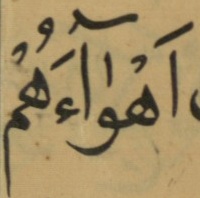 اَهْوَآءَهُمْ